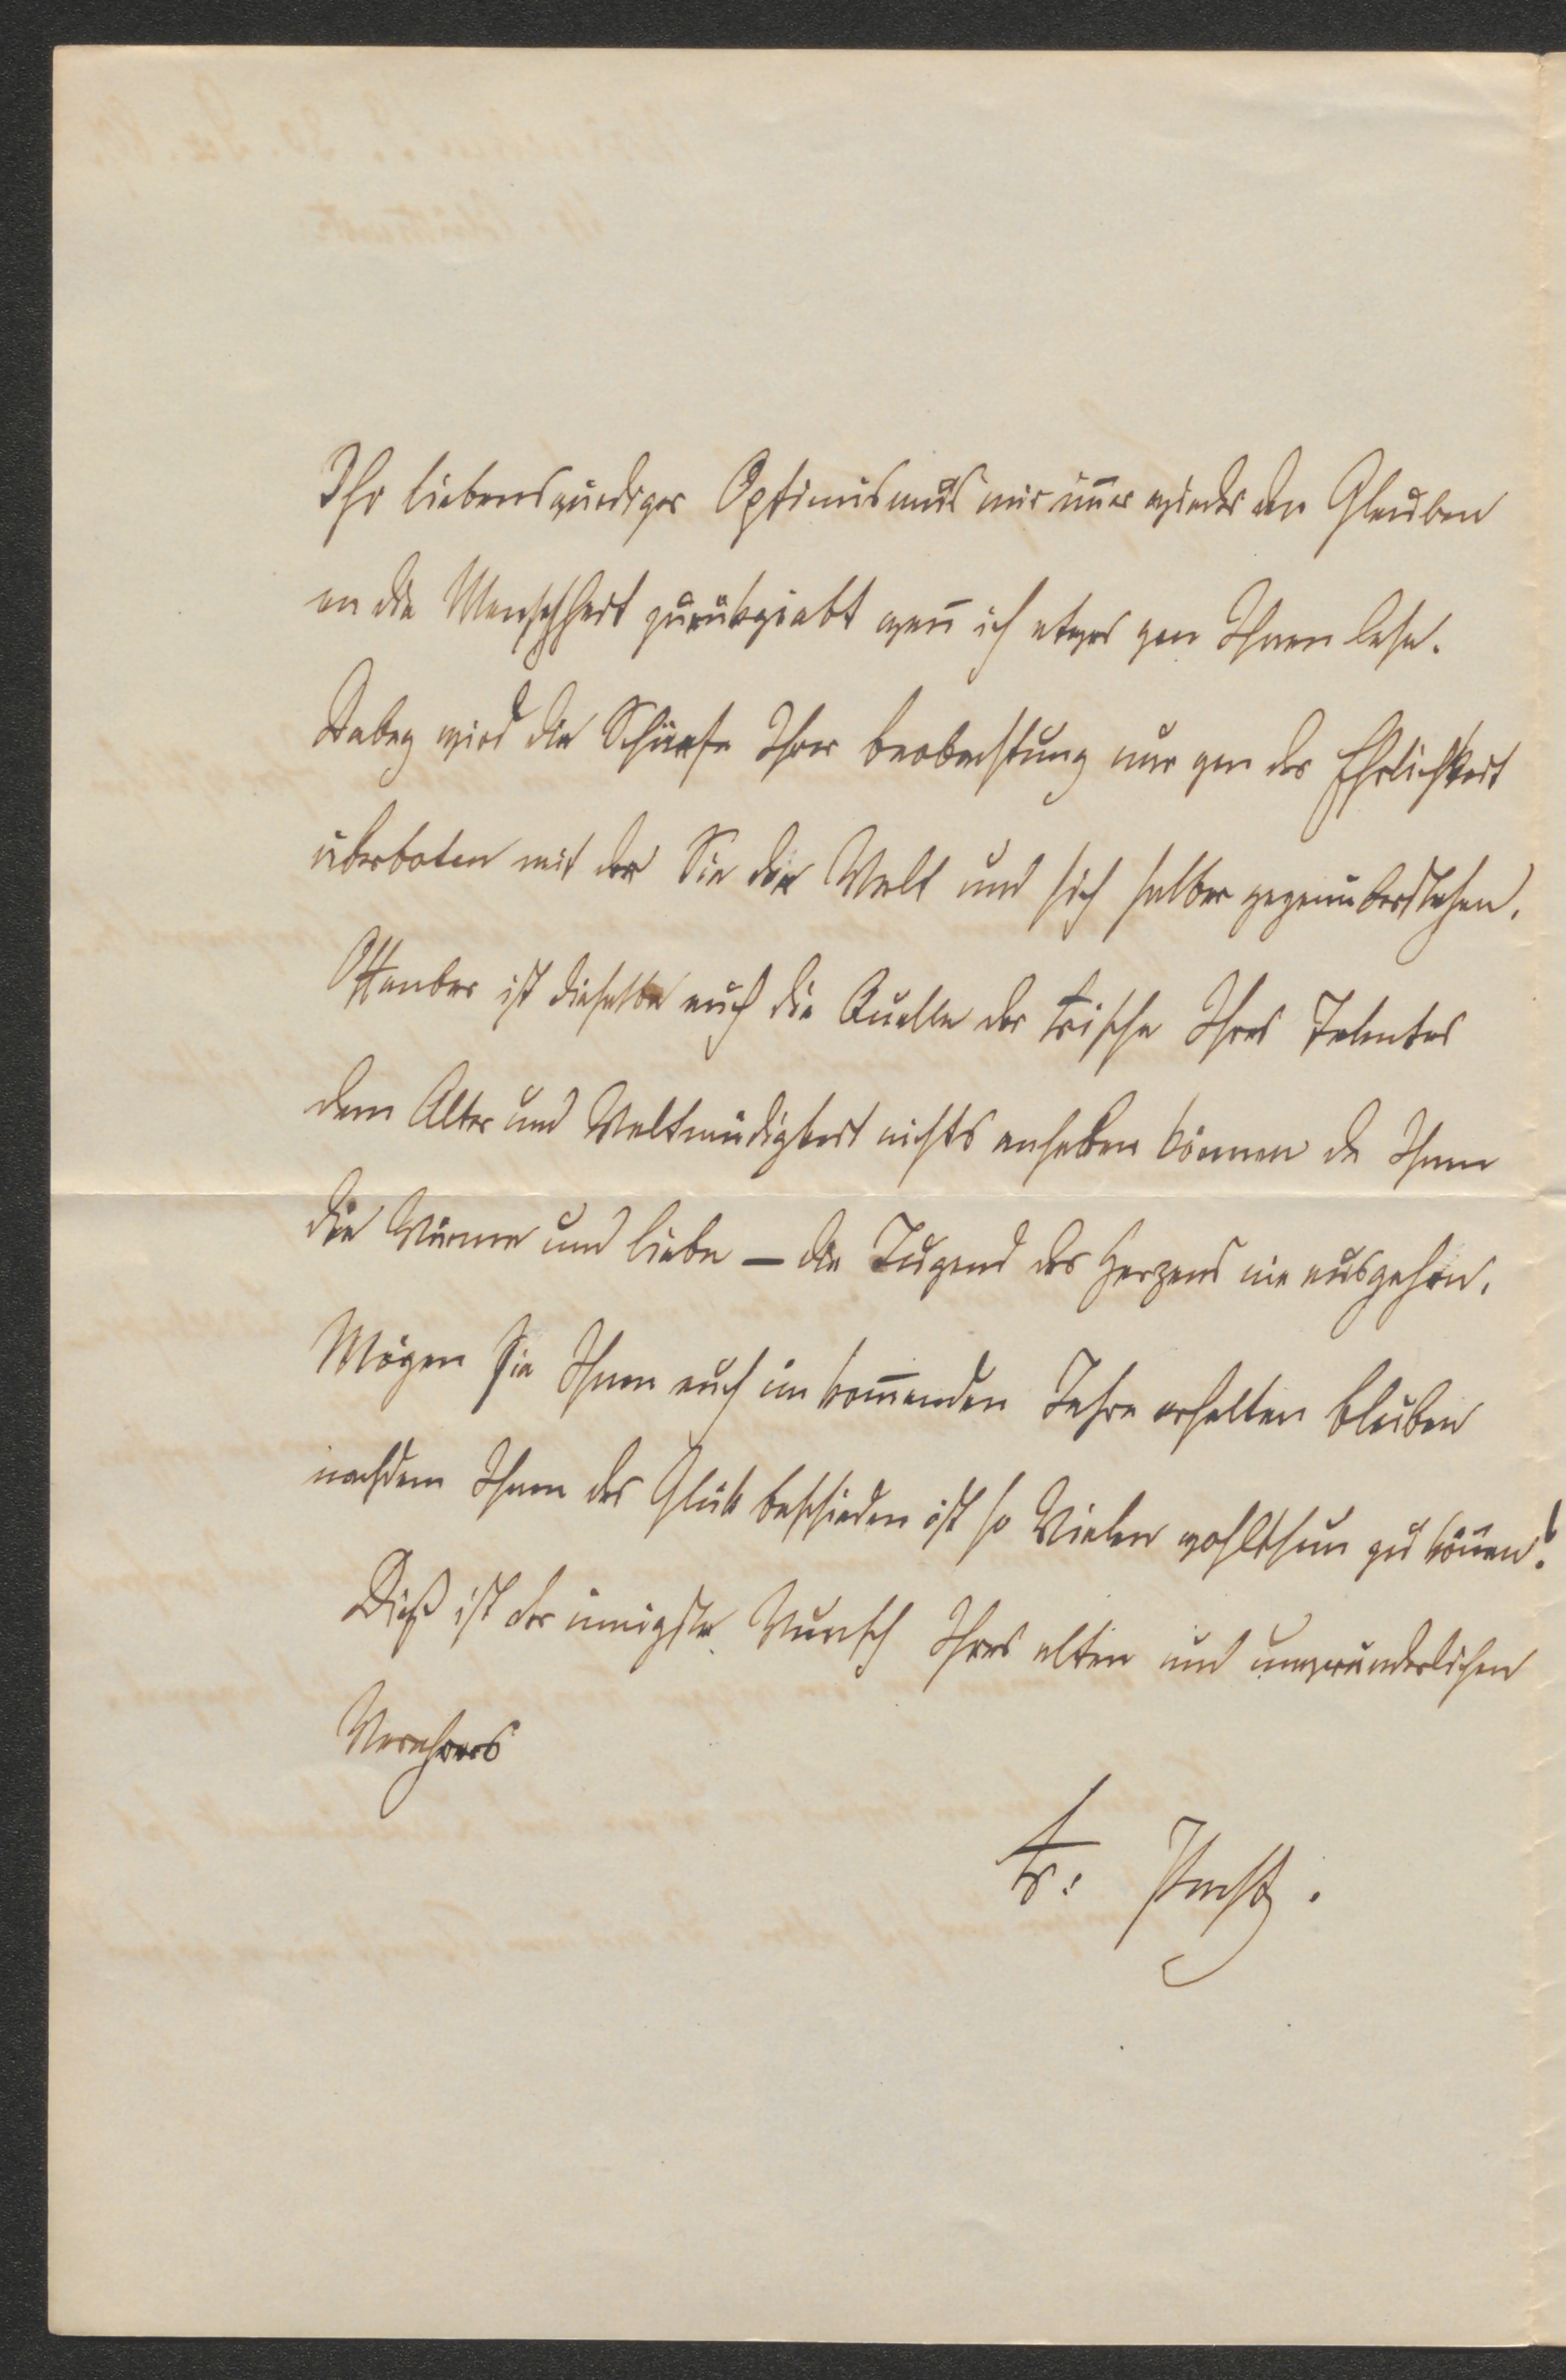 Ihr liebenswürdiger Optimismus mir im̄er wieder den Glauben
an die Menschheit zurükgiebt wen̄ ich etwas von Ihnen lese.
Dabey wird die Schärfe Ihrer Beobachtung nur von der Ehrlichkeit
überboten mit der Sie der Welt und sich selber gegenüberstehen.
Offenbar ist dieselbe auch die Quelle der Frische Ihres Talentes
dem Alter und Weltmüdigkeit nichts anhaben können da Ihnen
die Wärme und Liebe – die Jugend des Herzens nie ausgehen.
Mögen sie Ihnen auch im kom̄enden Jahre erhalten bleiben
nachdem Ihnen das Glük beschieden ist so Vielen wohlthun zu kön̄en!
Dieß ist der innigste Wunsch Ihres alten und unveränderlichen
Verehrers
Fr. Pecht.